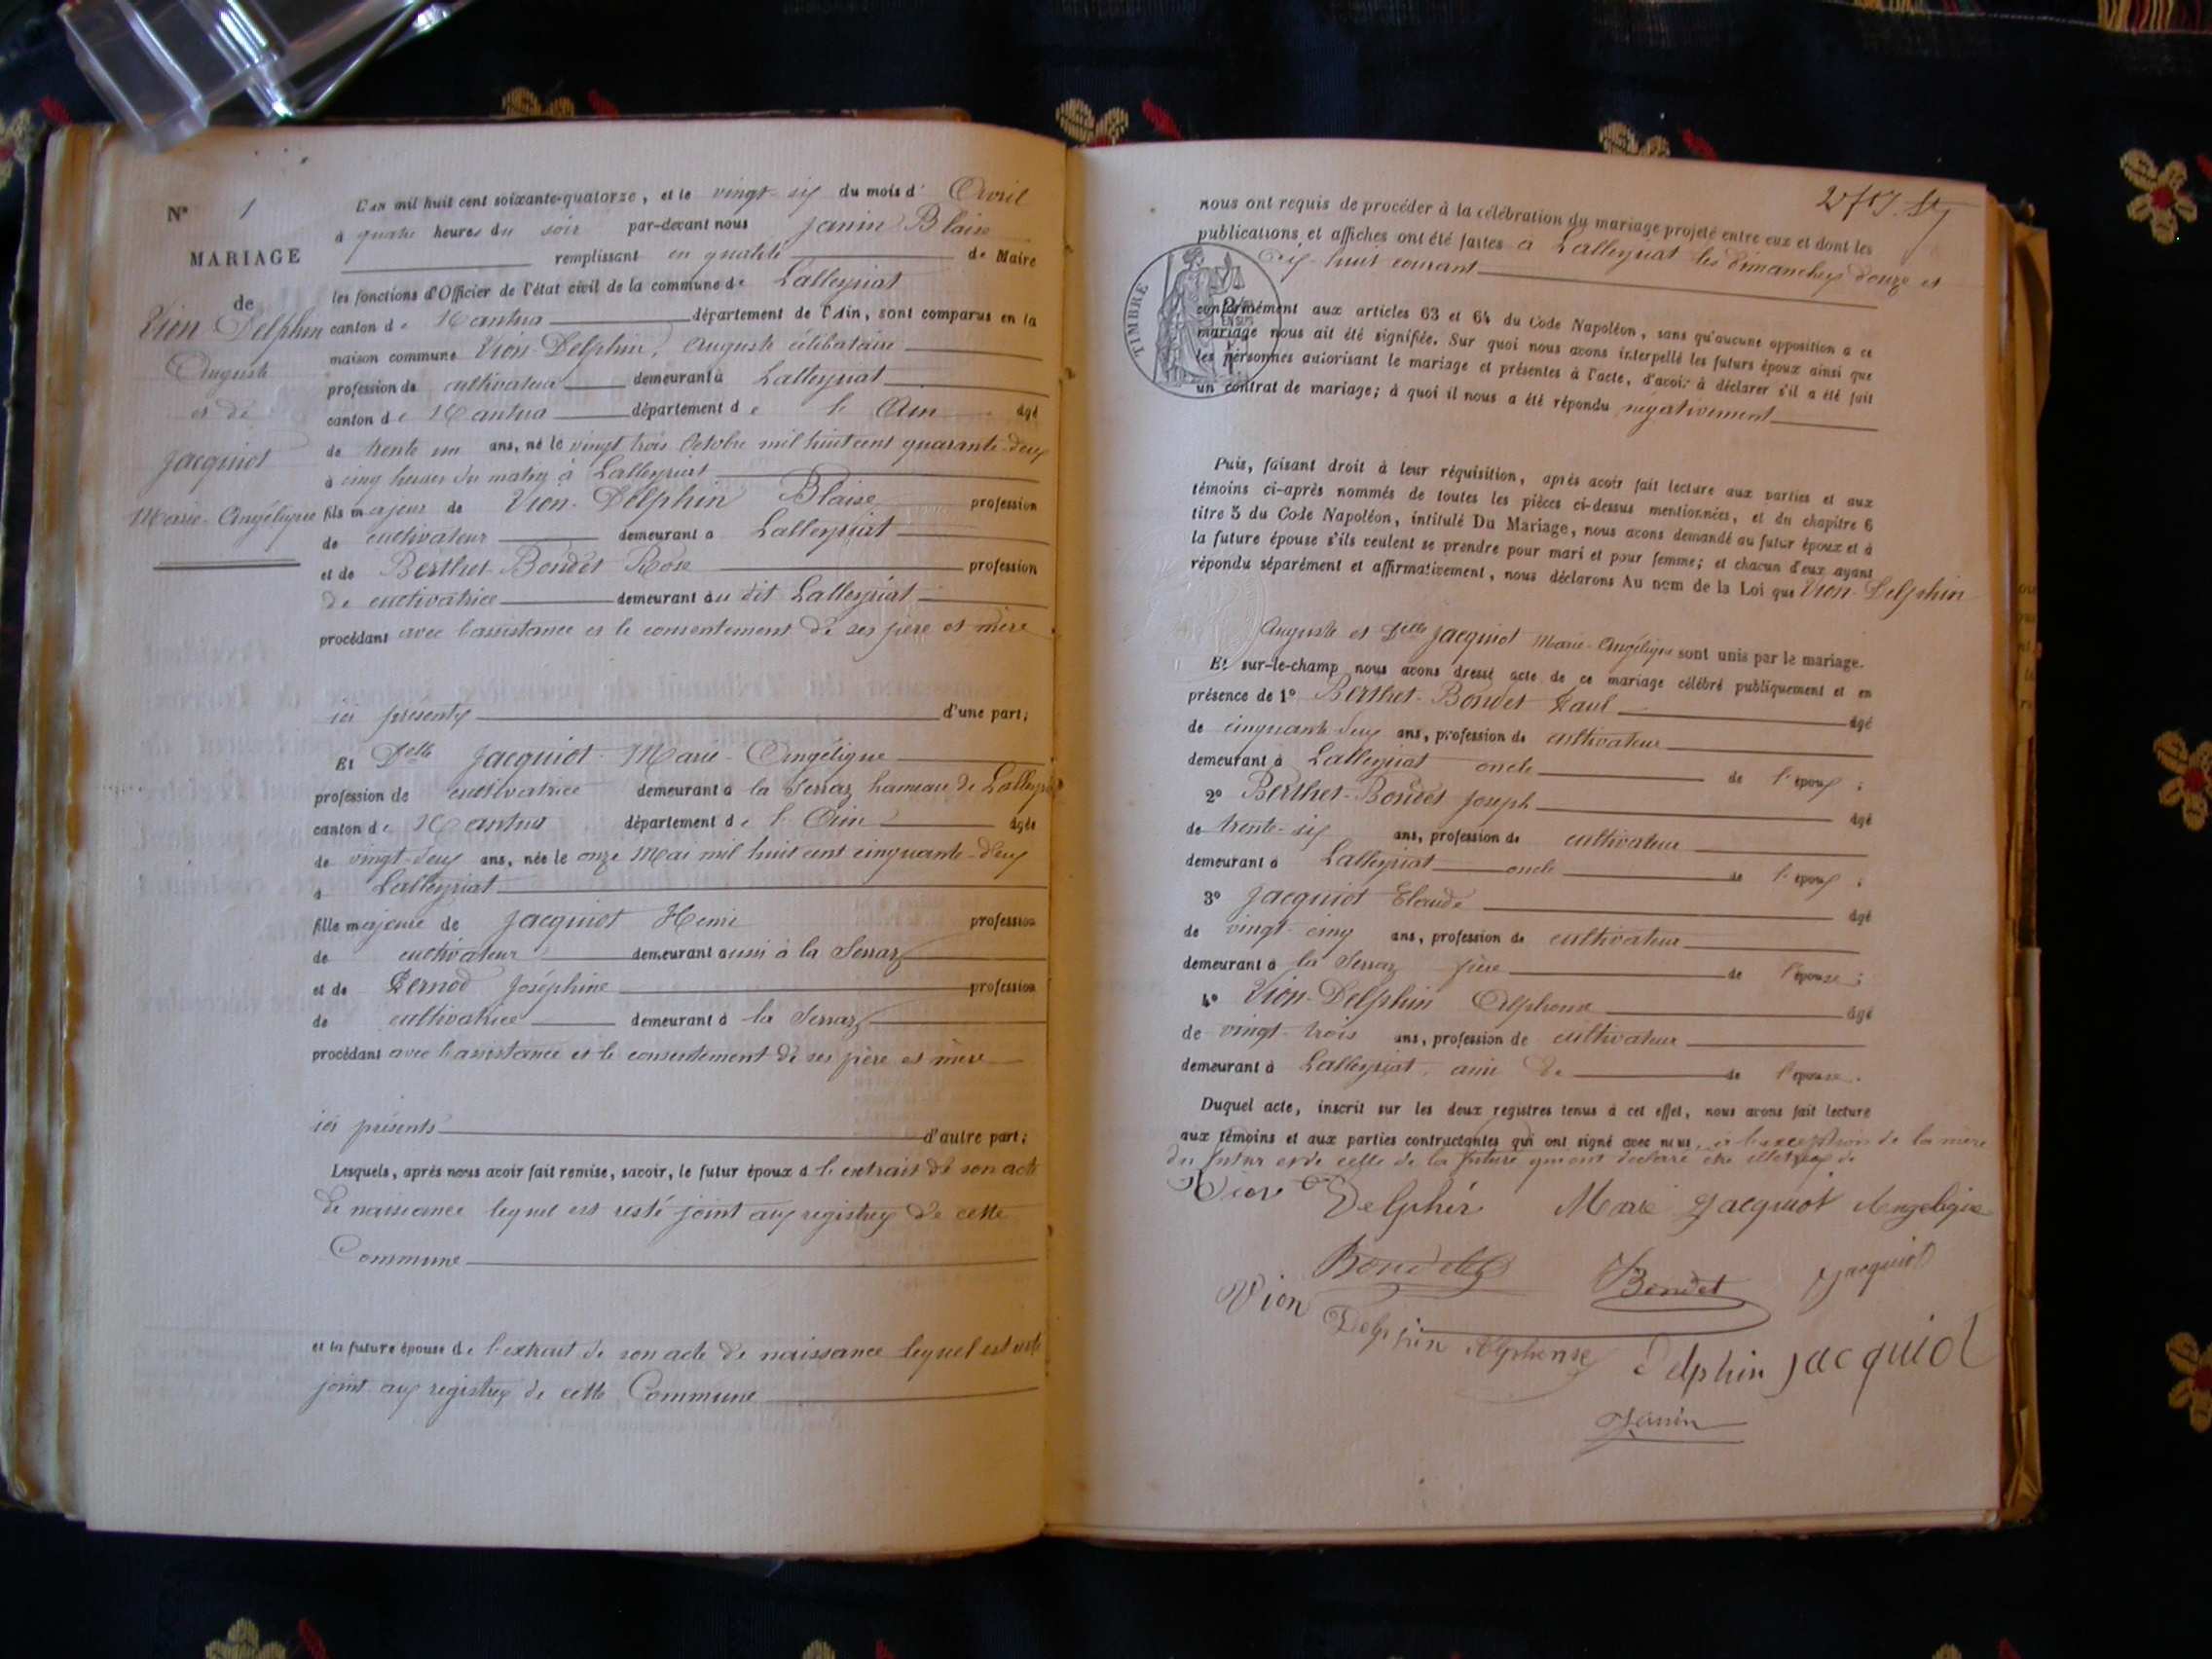 N° 1
MARIAGE
de
Vion Delphin
Auguste
et de
Jacquiot
Marie-Angélique
L'an mil huit cent soixante-quatorze, et le vingt-six du mois d' Avril
à quatre heures du soir par-devant nous Janin Blaise
remplissant en qualité de Maire
les fonctions d'Officier de l'état civil de la commune de Lalleyriat
canton de Nantua département de l'Ain, sont comparus en la
maison commune Vion-Delphin, Auguste célibataire
profession de cultivateur demeurant à Lalleyriat
canton de Nantua département de l'Ain âgé
de trente un ans, né le vingt trois Octobre mil huit cent quarante-deux
à cinq heures du matin à Lalleyriat
fils majeur de Vion-Delphin Blaise profession
de cultivateur demeurant à Lalleyriat
et de Berthet-Bondet Rose profession
de cultivatrice demeurant au dit Lalleyriat
procédant avec l'assistance et le consentement de ses père et mère
ici presents d'une part;
Et Delle Jacquiot Marie-Angélique
profession de cultivatrice demeurant à la Serraz hameau de
canton de Nantua département de l'Ain âgée
de vingt-deux ans, née le onze Mai mil huit cent cinquante-deux
à Lalleyriat
fille majeure de Jacquiot Henri profession
de cultivateur demeurant aussi à la Serraz
et de Pernod Joséphine profession
de cultivatrice demeurant à la Serraz
procédant avec l'assistance et le consentement de ses père et mère
ici présents d'autre part;
Lesquels, après nous avoir fait remise, savoir, le futur époux d l'extrait de son acte
de naissance lequel est resté joint aux registres de cette
Commune
et la future épouse de l'extrait de son acte de naissance lequel est resté
joint aux registres de cette Commune
nous ont requis de procéder à la célébration du mariage projeté entre eux et dont les
publications et affiches ont été faites à Lalleyriat les dimanches douze et
dix-huit courant
TIMBRE
conformément aux articles 63 et 64 du Code Napoléon, sans qu'aucune opposition à ce
mariage nous ait été signifiée. Sur quoi nous avons interpellé les futurs époux ainsi que
les personnes autorisant le mariage et présentes à l'acte, d'avoir à déclarer s'il a été fait
un contrat de mariage; à quoi il nous a été répondu négativement
Puis, faisant droit à leur réquisition, après avoir fait lecture aux parties et aux
témoins ci-après nommés de toutes les pièces ci-dessus mentionnées, et du chapitre 6
titre 5 du Code Napoléon, intitulé Du Mariage, nous avons demandé au futur époux et à
la future épouse s'ils veulent se prendre pour mari et pour femme; et chacun d'eux ayant
répondu séparément et affirmativement, nous déclarons Au nom de la Loi que Vion-Delphin
Auguste et Delle Jacquiot Marie-Angélique sont unis par le mariage.
Et sur-le-champ nous avons dressé acte de ce mariage célébré publiquement et en
présence de 1° Berthet-Bondet Paul âgé
de cinquante-deux ans, profession de cultivateur
demeurant à Lalleyriat oncle de l'époux;
2° Berthet-Bondet Joseph âgé
de trente-six ans, profession de cultivateur
demeurant à Lalleyriat oncle de l'époux;
3° Jacquiot Claude âgé
de vingt-cinq ans, profession de cultivateur
demeurant à la Serraz frère de l'épouse;
4° Vion-Delphin Alphonse âgé
de vingt-trois ans, profession de cultivateur
demeurant à Lalleyriat, ami de de l'épouse.
Duquel acte, inscrit sur les deux registres tenus à cet effet, nous avons fait lecture
aux témoins et aux parties contractantes qui ont signé avec nous, à l'exception de la mère
du futur et de celle de la future qui ont déclaré être illettrées
Vion Delphin Marie Jacquiot Angelique
Bondet Bondet Jacquiot
Vion Delphin Alphonse Delphin Jacquiot
Janin